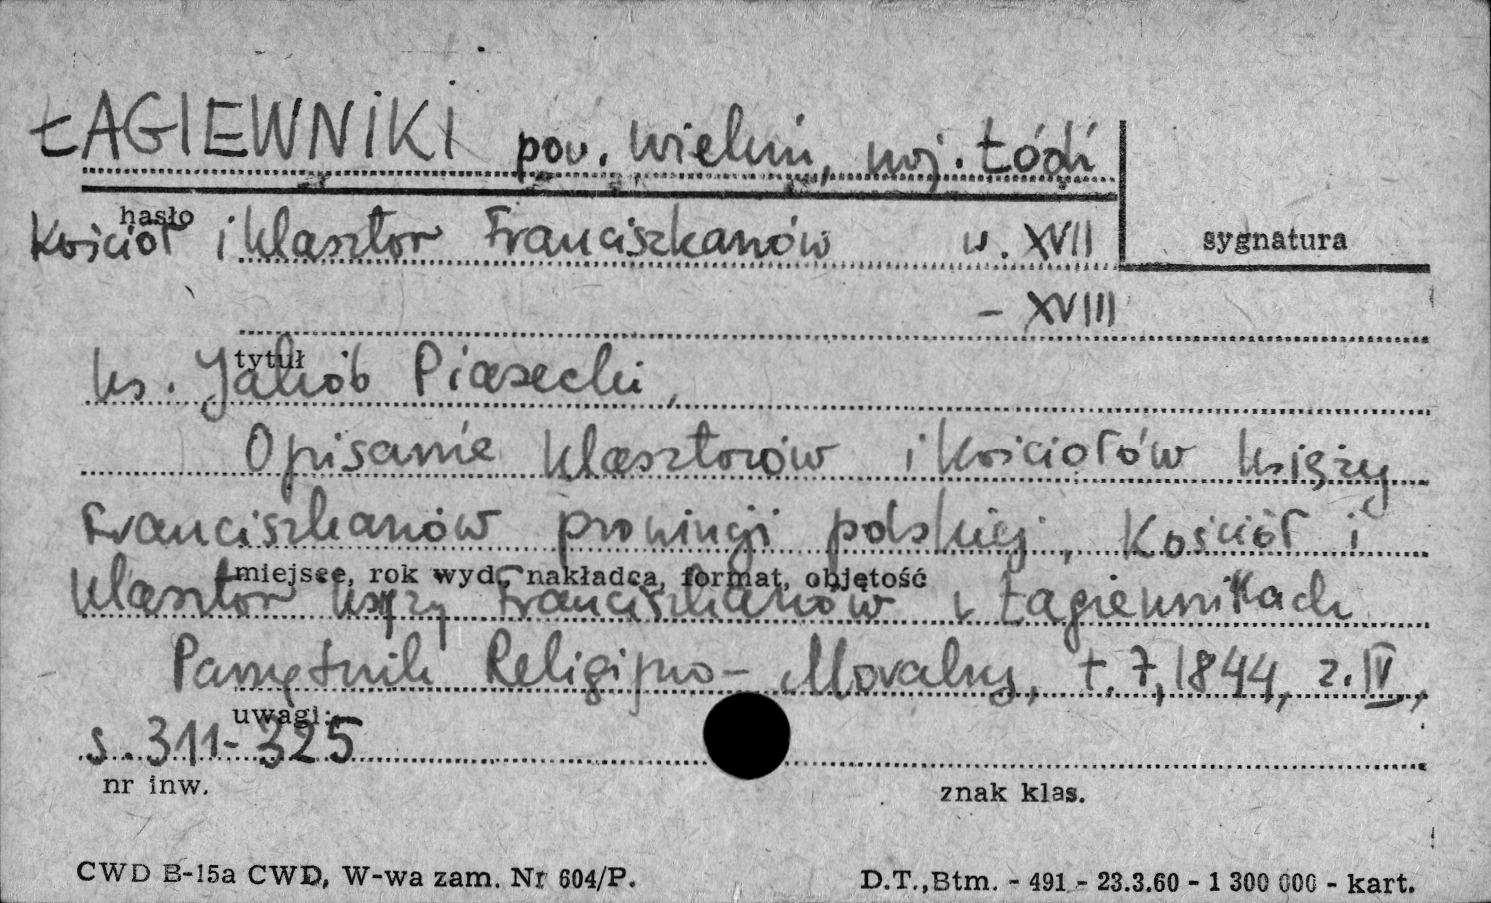 ŁAGIEWNIKI pow. wieluń, woj. Łódź
hasło
Kościół i klasztor Franciszkanów w. XVII
sygnatura
- XVIII
tytuł
ks. Jakób Piasecki,
Opisanie klasztorów i kościołów księży
Franciszkanów prowincji polskiej, Kościół i
miejsce, rok wyd., nakładca, format, objętość
klasztor księży Franciszkanów w Łagiewnikach
Pamiętnik Religijno-Moralny, t. 7, 1844, z. IV,
uwagi:
s. 311-325
nr inw.
znak klas.
CWD B-15a CWD, W-wa zam. Nr 604/P.
D.T., Btm. - 491 - 23.3.60 - 1 300 000 - kart.